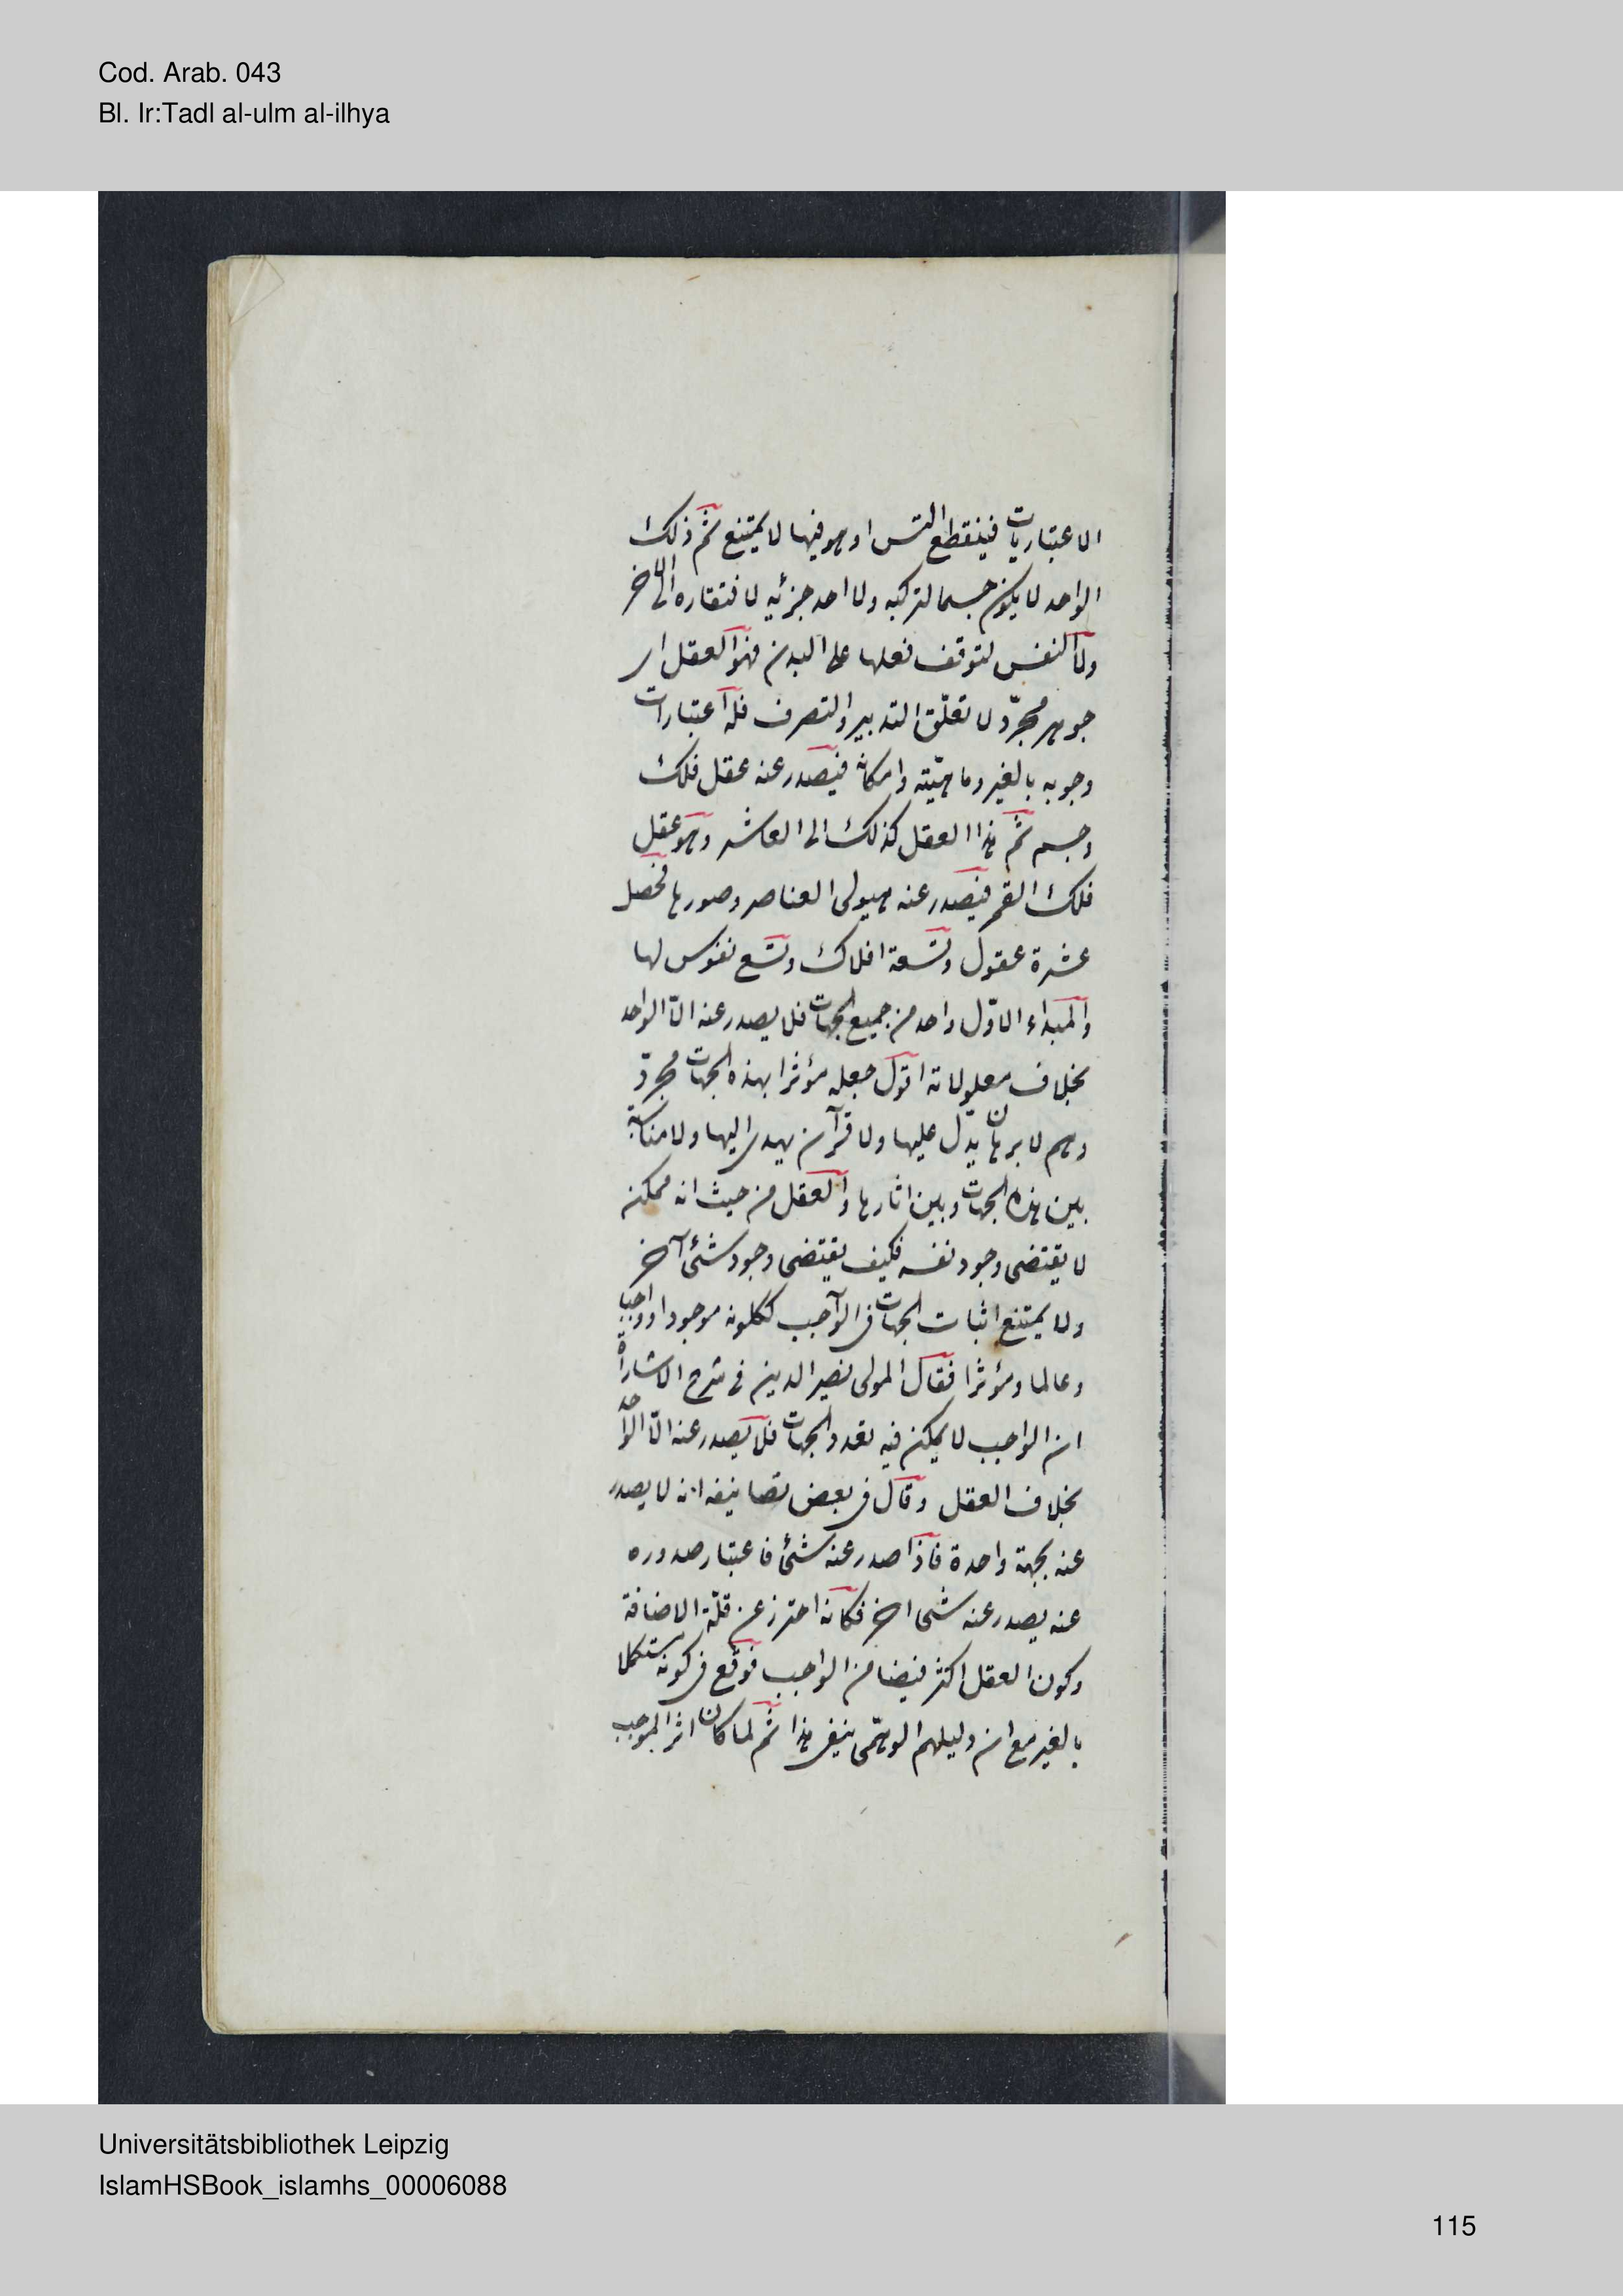 Cod. Arab. 043
Bl. Ir:Tadl al-ulm al-ilhya
الاعتباريات فينقطع التس اذ هو فيها لا يمتنع ثم ذلك
الواحد لا يكون جسما لتركبه ولا احد جزئيه لافتقاره الى الاخر
ولا النفس لتوقف فعلها على البدن فهو العقل اى
جوهر مجرّد لا تعلّق التدبير والتصرف فله اعتبارات
وجوبه بالغير وماهيّته وامكانه فيصدر عنه عقل فلك
وجسم ثم هذا العقل كذلك الى العاشر وهو عقل
فلك القمر فيصدر عنه هيولى العناصر وصورها فحصل
عشرة عقول وتسعة افلاك وتسع نفوس لها
والمبداء الاوّل واحد من جميع الجهات فلا يصدر عنه الّا الواحد
بخلاف معلولاته اقول جعله مؤثرا بهذه الجهات مجرّد
وهم لا برهان يدّل عليها ولا قرآن يهدى اليها ولا مناسبة
بين هذه الجهات وبين اثارها والعقل من حيث انه ممكن
لا يقتضى وجود نفسه فكيف يقتضى وجود شئ آخر
ولا يمتنع اثبات الجهات فى الواجب ككونه موجودا وواجبا
وعالما ومؤثرا فقال المولى نصير الدين فى شرح الاشارة
ان الواجب لا يمكن فيه تعدد الجهات فلا يصدر عنه الّا الواحد
بخلاف العقل وقال فى بعض تصانيفه انه لا يصدر
عنه بجهة واحدة فاذا صدر عنه شئ فاعتبار صدوره
عنه يصدر عنه شئ اخر فكانه احترز عن قلّة الاضافة
وكون العقل اكثر فيضا من الواجب فوقع فى كونه مستكملا
بالغير مع ان دليلهم الوهمّى ينفى هذا ثم لما كان اثر الموجب
Universitätsbibliothek Leipzig
IslamHSBook_islamhs_00006088
115